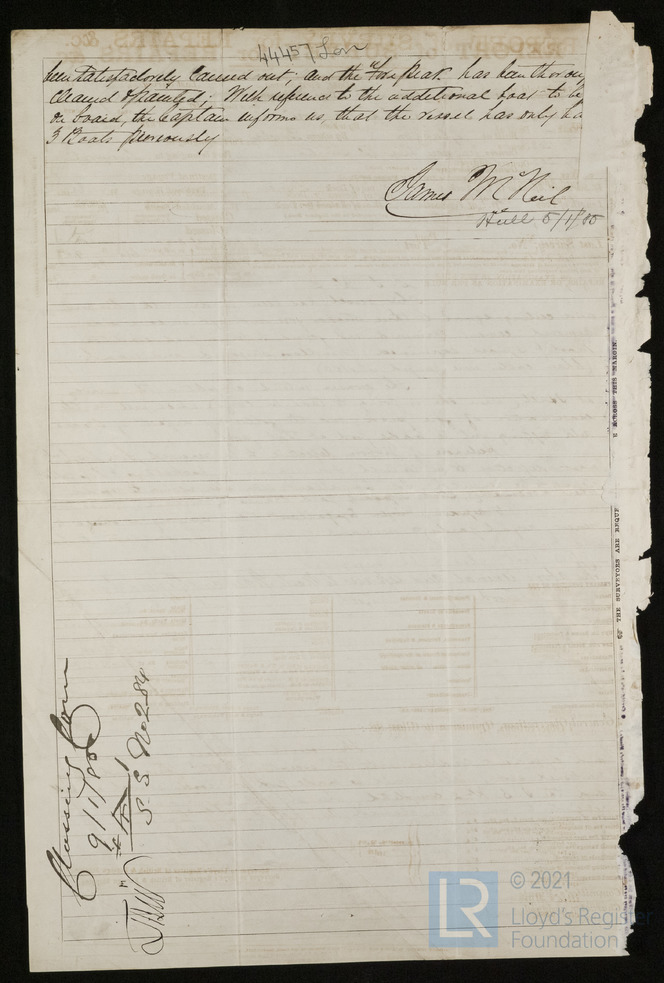 44457 Lon
been satisfactorily carried out; and the Fore Peak has been thorou
cleaned & painted; With reference to the additional boat to be
on board, the Captain informs us, that the vessel has only ha
3 Boats previously
James McNeil
Hull 5/1/85
ACROSS THIS MARGIN.
OF THE SURVEYORS ARE REQUE
Classing Com
9/1/85
S S No 2 84
© 2021
LR
Lloyd's Register
Foundation